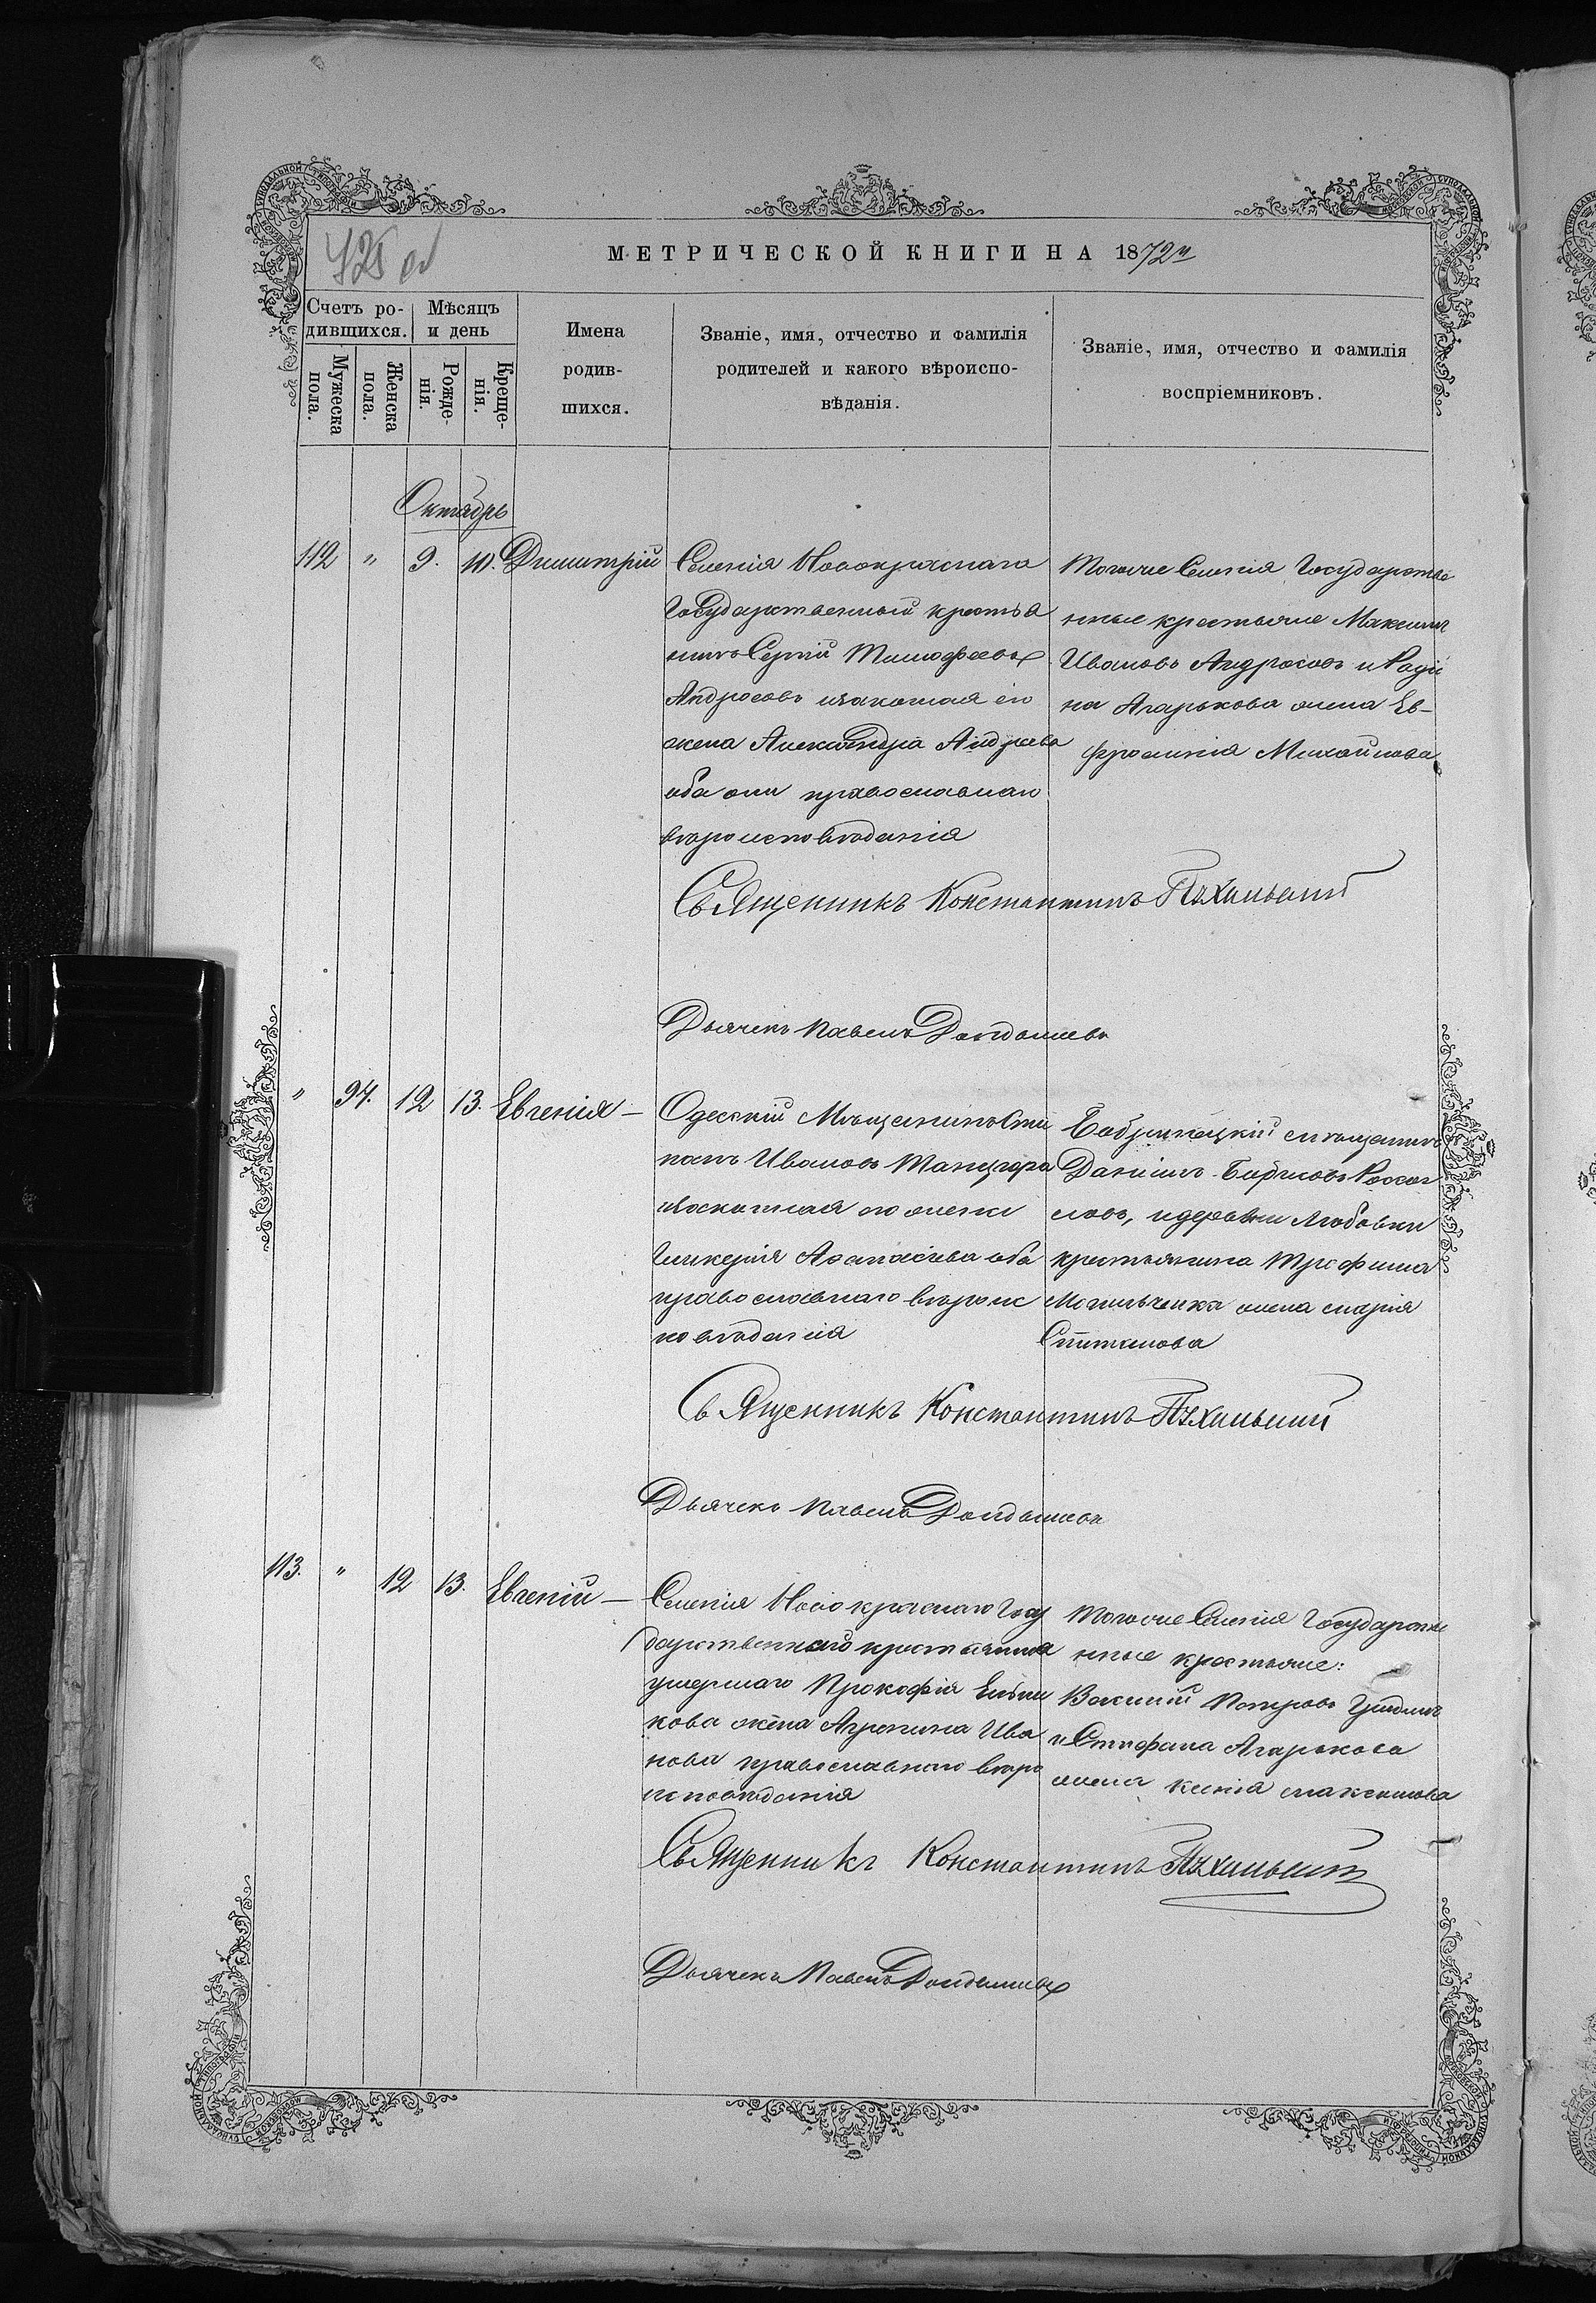 МЕТРИЧЕСКОЙ КНИГИ НА 1872 г
Счетъ ро-
дившихся.
Мѣсяцъ
и день
Мужеска
пола.
Женска
пола.
Рожде-
нія.
Креще-
нія.
Имена
родив-
шихся.
Званіе, имя, отчество и фамилія
родителей и какого вѣроиспо-
вѣданія.
Званіе, имя, отчество и фамилія
воспріемниковъ.
Октябрь
112 " 9. 10. Димитрій
Селенія Новокраснаго
Государственный крестья
нинъ Сергій Тимофеевъ
Андросовъ изаконная его
жена Александра Андреева
оба они православнаго
вѣроисповѣданія
Тогоже Селенія Государстве
нные крестьяне Максимъ
Ивановъ Андросовъ и
на Агаркова жена Ев-
фросинія Михайлова
Священникъ Константинъ
Дьячекъ Павелъ
" 94. 12 13. Евгенія —
Одесскій Мѣщанинъ Сти
панъ Ивановъ
изаконная его жена
Гликерія Аѳанасіева оба
православнаго вѣроис
повѣданія
Бобринецкій мѣщанинъ
Даніилъ Борисовъ
ловъ, идеревни Любовки
крестьянина Трофима
жена Марія
Священникъ Константинъ
Дьячекъ Павелъ
113. " 12 13. Евгеній —
Селенія Новокраснаго Госу
дарственнаго крестьянина
умершаго Прокофія
кова жена Агрипина Ива
нова православнаго вѣро
исповѣданія
Тогоже Селенія Государстве
нные крестьяне:
Василій Петровъ
и Стефана Агаркова
жена Ксенія Максимова
Священникъ Константинъ
Дьячекъ Павелъ